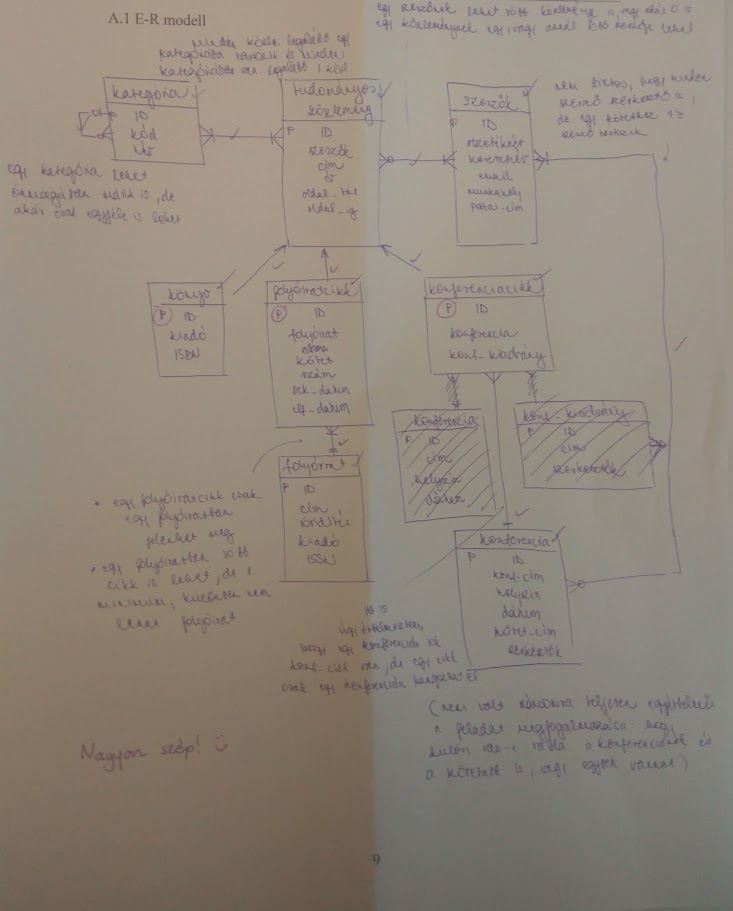 A.1 E-R modell
egy szerzőnek lehet több közleménye is, vagy akár 0 is
egy közleménynek egy, vagy annál több szerzője lehet
minden közlem. legalább egy
kategóriába tartozik és minden
kategóriában van legalább 1 közl.
kategória
ID
kód
név
egy kategória lehet
önmagában másik is, de
akár csak egyféle is lehet
tudományos
közlemény
P ID
szerzők
cím
év
oldal_tól
oldal_ig
szerzők
P ID
vezetéknév
keresztnév
email
munkahely
postai-cím
nem biztos, hogy minden
szerző szerkesztő is,
de egy kötetnek 1≥
könyv
P ID
kiadó
ISBN
folyóiratcikk
P ID
folyóirat
kötet
szám
konferenciacikk
P ID
konferencia
konf-kiadvány
konferencia
P ID
cím
helyszín
dátum
konf-kiadvány
P ID
cím
szerkesztők
folyóirat
P ID
cím
kiadó
ISSN
• egy folyóiratcikk csak
egy folyóiratban
jelenhet meg
• egy folyóiratban több
cikk is lehet, de 1
minimum, különben nem
lenne folyóirat
konferencia
P ID
konf-cím
helyszín
dátum
kötet-cím
szerkesztők
itt is
úgy értelmeztem,
hogy egy konferencián sok
konf. cikk van, de egy cikk
csak egy konferencián hangozhat el
(nem volt számomra teljesen egyértelmű
a feladat megfogalmazása: hogy
külön van-e tábla a konferenciának és
a kötetnek is, vagy egyben vannak)
Nagyon szép!
9